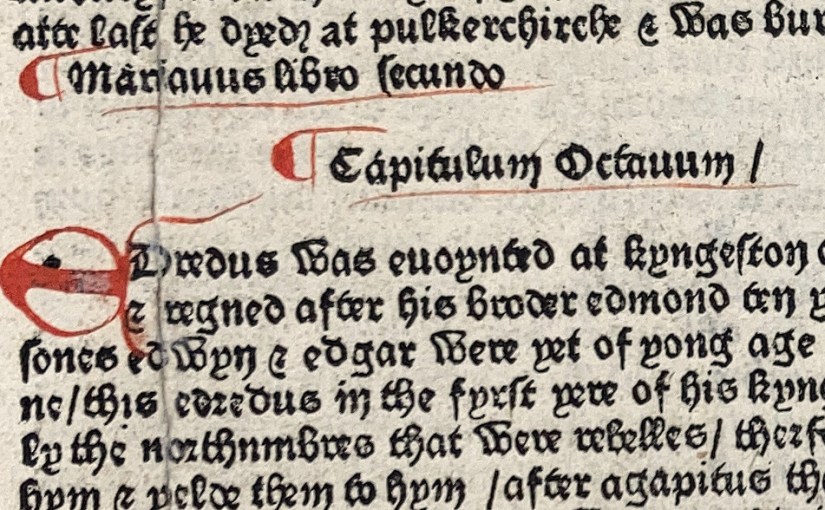 atte last he dyedꝫ at pulkerchirche ⁊ was bur
¶ Marianus libro secundo
¶ Capitulum Octauum /
EDredus was enoynted at kyngeston
⁊ regned after his broder edmond ten y
sones edwyn ⁊ edgar were yet of yong age
ne/this edredus in the fyrst yere of his kyng
ly the northnmbres that were rebelles/ therf
hym ⁊ yelde them to hym /after agapitus th